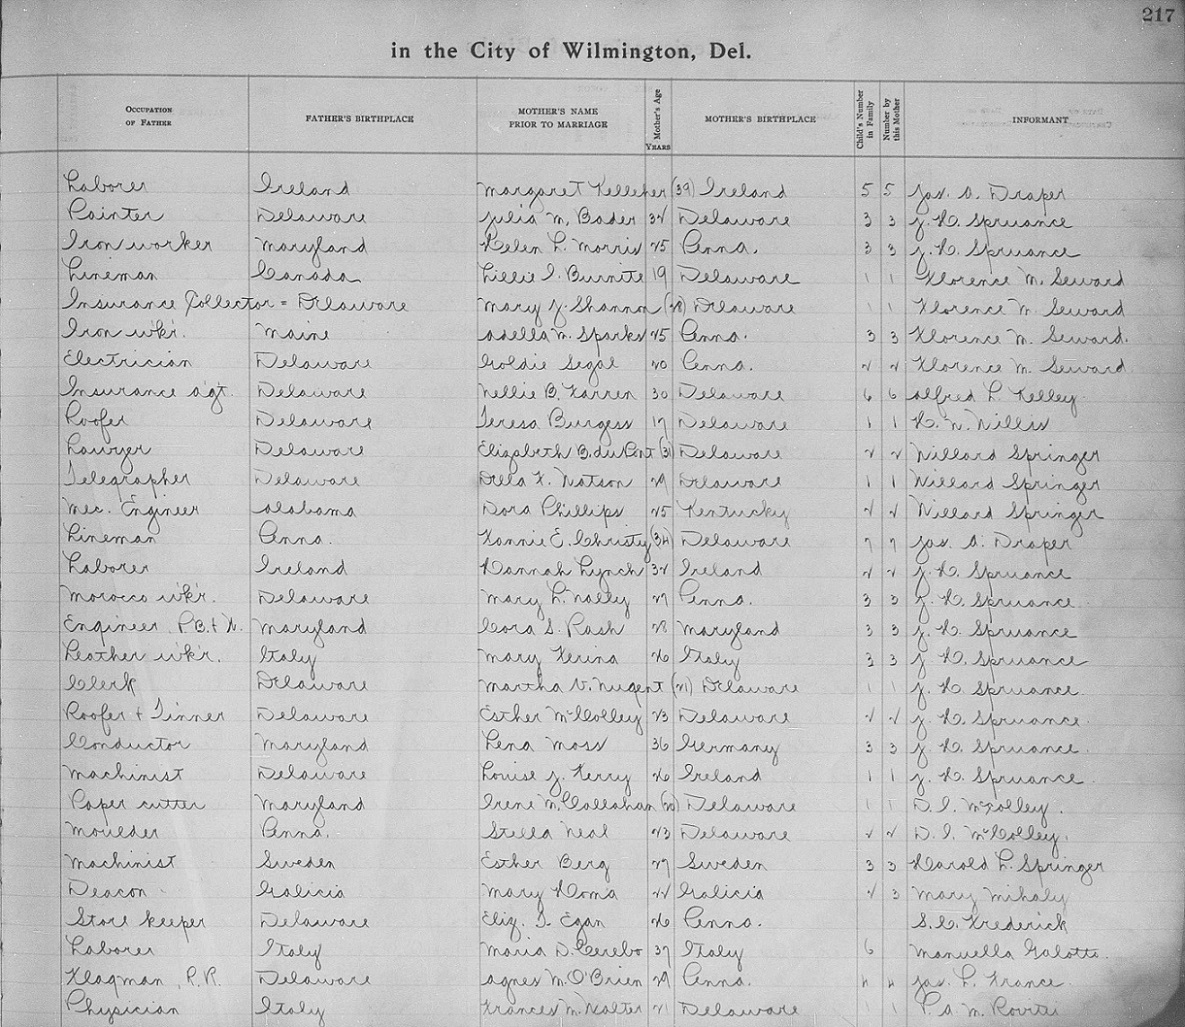 217
in the City of Wilmington, Del.
Occupation of Father Father's Birthplace Mother's Name Prior to Marriage Mother's Age Years Mother's Birthplace Child's Number in Family Number by this Mother Informant
Laborer Ireland Margaret Kelleher (39) Ireland 5 5 Jas. A. Draper
Painter Delaware Julia M. Bader 32 Delaware 3 3 J. H. Spruance
Iron worker Maryland Helen L. Morris 25 Penna. 3 3 J. H. Spruance
Lineman Canada Lillie I. Burnite 19 Delaware 1 1 Florence M. Seward
Insurance Collector = Delaware Mary J. Shannon (28) Delaware 1 1 Florence M. Seward
Iron wkr. Maine Adella M. Sparks 25 Penna. 3 3 Florence M. Seward.
Electrician Delaware Goldie Segal 20 Penna. 2 2 Florence M. Seward
Insurance Agt. Delaware Nellie B. Farren 30 Delaware 6 6 Alfred L. Kelley
Roofer Delaware Teresa Burgess 17 Delaware 1 1 H. W. Willis
Lawyer Delaware Elizabeth B. du Pont (31) Delaware 2 2 Willard Springer
Telegrapher Delaware Della F. Watson 29 Delaware 1 1 Willard Springer
Mec. Engineer Alabama Dora Phillips 25 Kentucky 2 2 Willard Springer
Lineman Penna. Fannie E. Christy (34) Delaware 7 7 Jas. A. Draper
Laborer Ireland Hannah Lynch 32 Ireland 2 2 J. H. Spruance
Morocco wkr. Delaware Mary L. Nalley 27 Penna. 3 3 J. H. Spruance.
Engineer, P.B. & W. Maryland Cora S. Rash 28 Maryland 3 3 J. H. Spruance
Leather wkr. Italy Mary Ferina 26 Italy 3 3 J. H. Spruance
Clerk Delaware Martha V. Nugent (21) Delaware 1 1 J. H. Spruance.
Roofer & Tinner Delaware Esther McColley 23 Delaware 2 2 J. H. Spruance.
Conductor Maryland Lena Moss 36 Germany 3 3 J. H. Spruance.
Machinist Delaware Louise J. Ferry 26 Ireland 1 1 J. H. Spruance.
Paper cutter Maryland Irene M. Callahan (20) Delaware 1 1 D. I. McColley.
Moulder Penna. Stella Neal 23 Delaware 2 2 D. I. McColley.
Machinist Sweden Esther Berg 27 Sweden 3 3 Harold L. Springer
Deacon Galicia Mary Homa 22 Galicia 2 3 Mary Mihaly
Store keeper Delaware Eliz. T. Egan 26 Penna. S. C. Frederick
Laborer Italy Maria D. Cerebo 37 Italy 6 Manuella Galotti.
Flagman, R.R. Delaware Agnes M. O'Brien 29 Penna. 4 4 Jas. L. France.
Physician Italy Frances M. Walter 21 Delaware 1 1 P. A. M. Rovitti